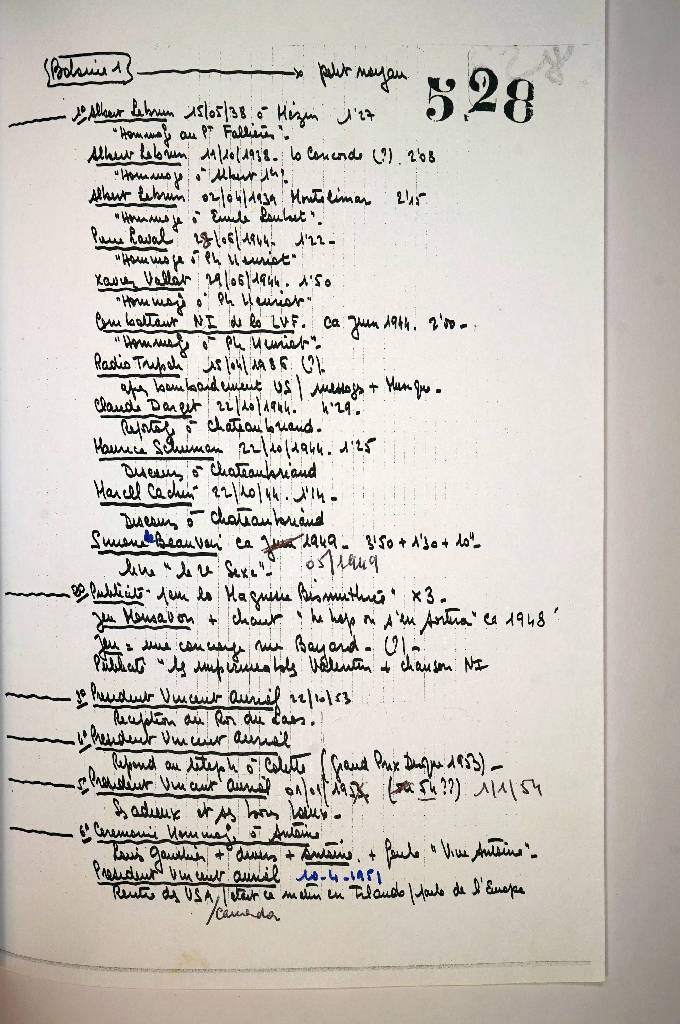 Bobine 1 → petit noyau
528
1º Albert Lebrun 15/05/38 à Mézin 1'27
"Hommage au Pt Fallières".
Albert Lebrun 11/10/1938. la Concorde (?). 2'08
"Hommage à Albert 1er".
Albert Lebrun 02/04/1939 Montélimar 2'15
"Hommage à Emile Loubet".
Pierre Laval 28/06/1944. 1'22 -
"Hommage à Ph Henriot"
Xavier Vallat 29/06/1944. 1'50
"Hommage à Ph Henriot"
Combattant NI de la LVF. ca Juin 1944. 2'00 -
"Hommage à Ph Henriot".
Radio Tripoli 15/04/1986 (?).
après bombardement US / message + Musique -
Claude Darget 22/10/1944. 4'29.
Reportage à Chateaubriand.
Maurice Schuman 22/10/1944. 1'25
Discours à Chateaubriand
Marcel Cachin 22/10/44. 1'14 -
Discours à Chateaubriand
Simone de Beauvoir ca Juin 1949 - 3'50 + 1'30 + 10" -
05/1949
livre "le 2e Sexe" -
2º Publicité pour la Magnésie Bismurée" x 3 -
Jeu Monsavon + chant "le hop on s'en sortira" ca 1948
Jeu = une concierge rue Bayard - (?) -
Publicité "les imperméables Valentin + chanson NI
3º President Vincent Auriol 22/10/53
Reception du Roi du Laos.
4º President Vincent Auriol
Repond au téléph à Colette (Grand Prix Disque 1953) -
5º President Vincent Auriol 01/01/1953 (ou 54 ??) 1/1/54
Ses adieux et ses bons voeux -
6º Ceremonie Hommage à Antoine
Louis Gauthier + divers + Antoine. + foule "Vive Antoine" -
President Vincent Auriol 10-4-1951
Rentre des USA / était ce matin en Irlande / parle de l'Europe
/Canada